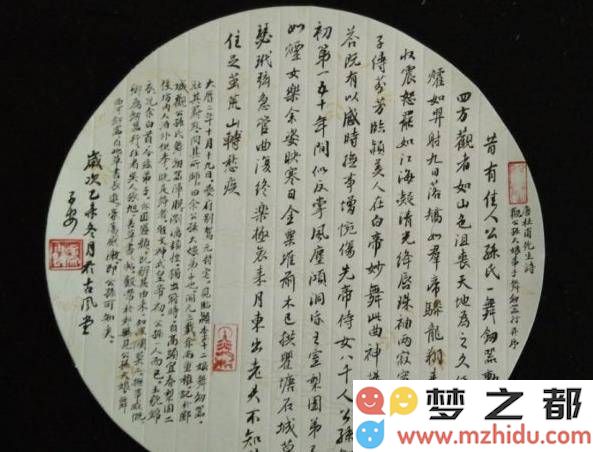 唐杜甫先生詩
觀公孫大娘弟子舞劍器行并序
昔有佳人公孫氏一舞劍器動
四方觀者如山色沮喪天地為之久低
㸌如羿射九日落矯如群帝驂龍翔來
收震怒罷如江海凝清光絳唇珠袖兩寂
子傳芬芳臨潁美人在白帝妙舞此曲神揚
答既有以感時撫事增惋傷先帝侍女八千人公孫
初第一五十年間似反掌風塵澒洞昏王室梨園弟子
如煙女樂餘姿映寒日金粟堆前木已拱瞿塘石城草
瑟玳弦急管曲復終樂極哀來月東出老夫不知其
往足繭荒山轉愁疾
大曆二年十月十九日夔府別駕元持宅見臨潁李十二娘舞劍器
壯其蔚跂問其所師曰余公孫大娘弟子也開元三載余尚童稚記於郾
城觀公孫氏舞劍器渾脫瀏灕頓挫獨出冠時自高頭宜春梨園二
伎坊內人洎外供奉曉是舞者聖文神武皇帝初公孫一人而已玉貌錦
衣況余白首今茲弟子亦匪盛顏既辨其由來知波瀾莫二撫事慷慨
聊為劍器行往者吳人張旭善草書書帖數常於鄴縣見公孫大娘舞
西河劍器自此草書長進豪蕩感激即公孫可知矣
歲次乙未冬月於古風堂
梦之都
www.mzhidu.com